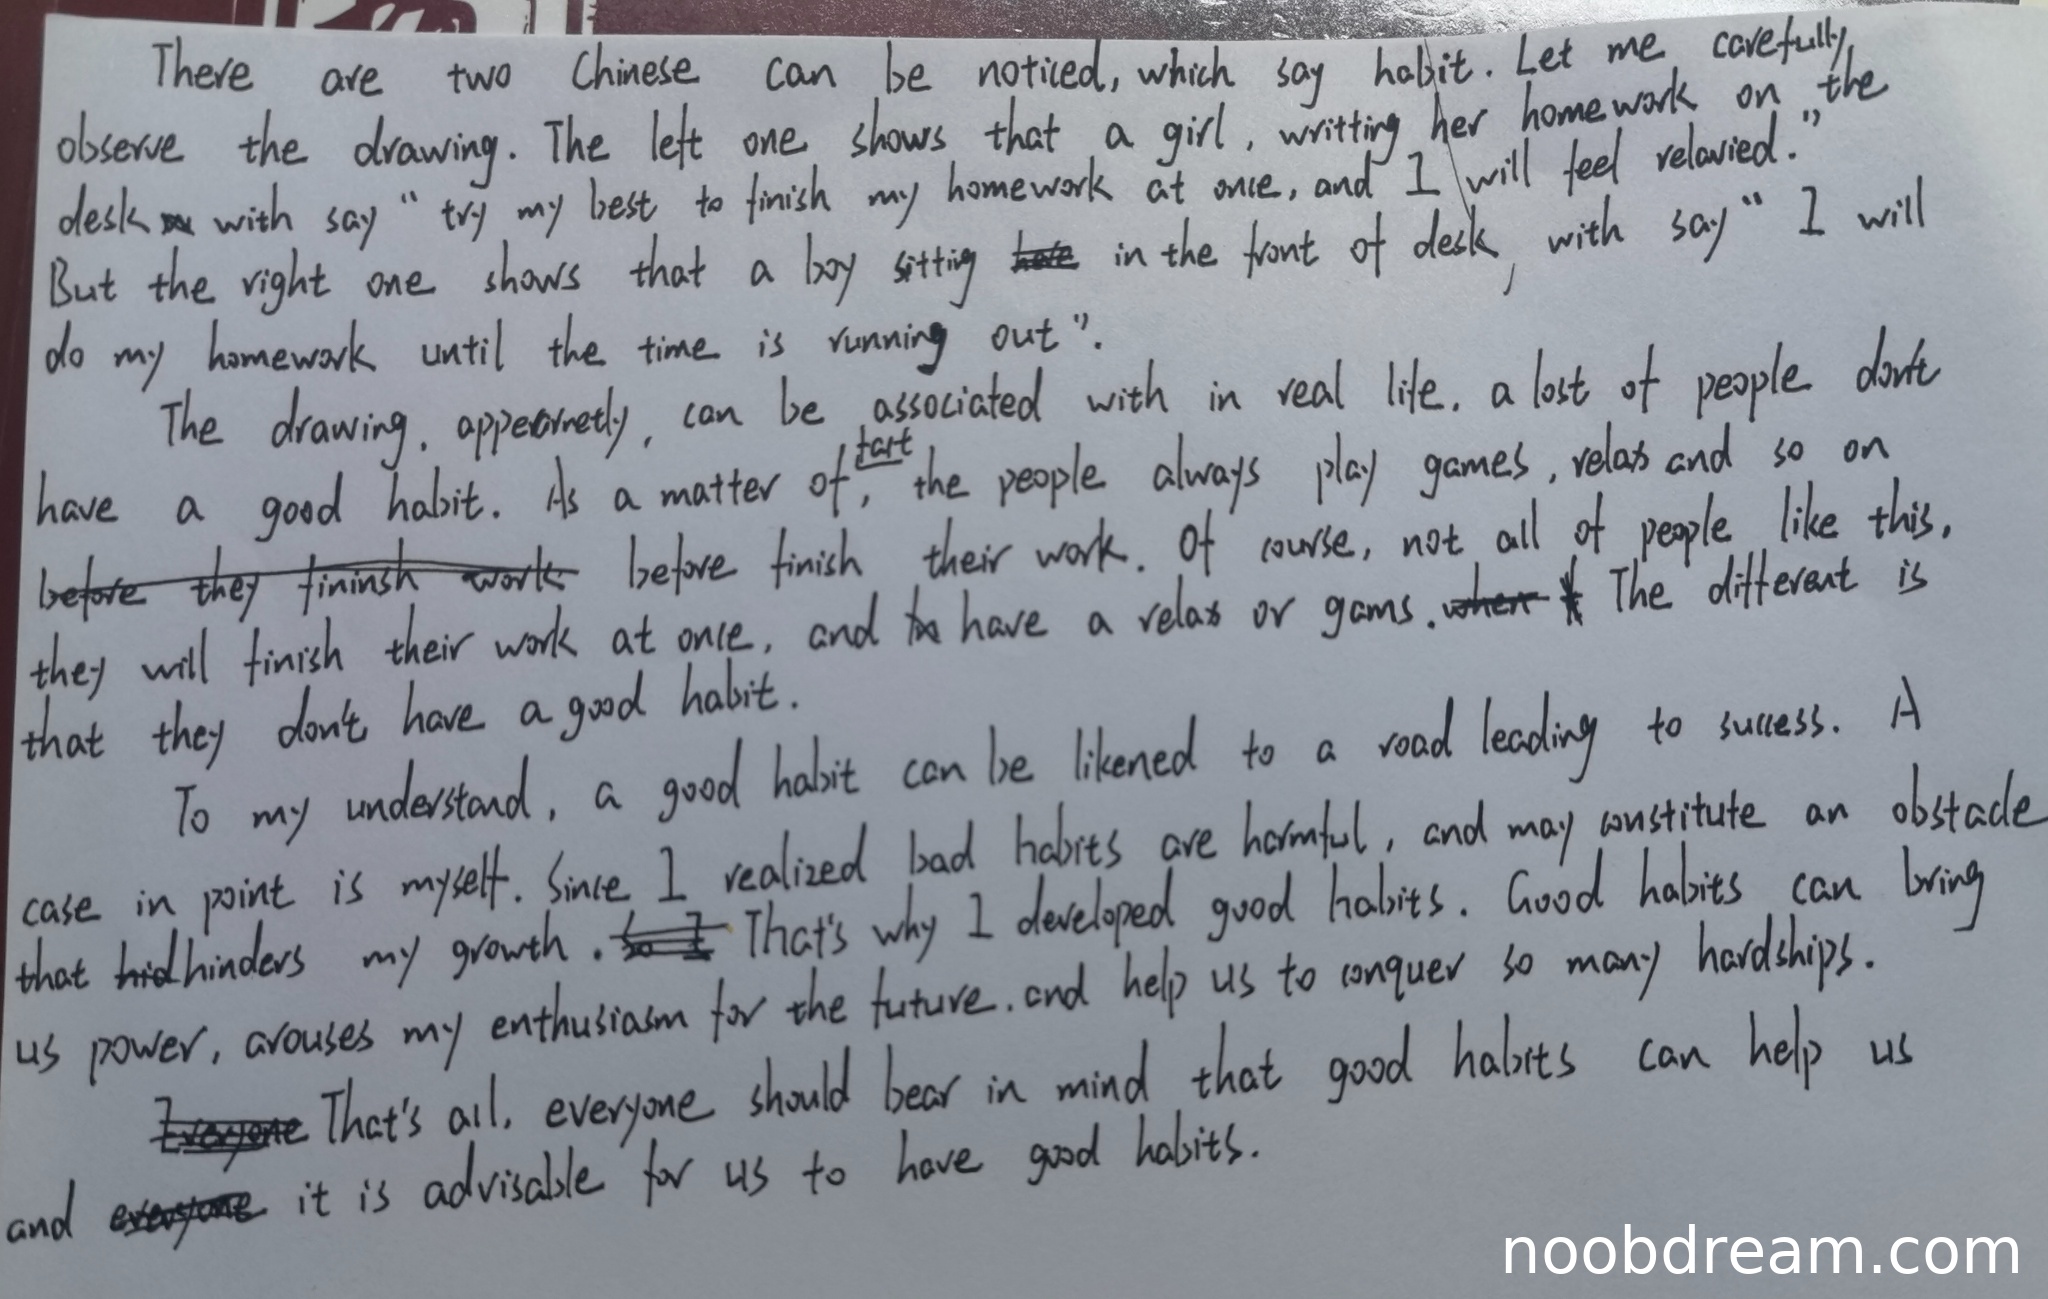 There are two Chinese can be noticed, which say habit. Let me carefully
observe the drawing. The left one shows that a girl, writting her homework on the
desk with say " try my best to finish my homework at once, and I will feel relavied."
But the right one shows that a boy sitting in the front of desk, with say " I will
do my homework until the time is running out ".
The drawing, appearnetly, can be associated with in real life. a lost of people don't
have a good habit. As a matter of fart, the people always play games, relax and so on
before they fininsh work before finish their work. Of course, not all of people like this,
they will finish their work at once, and have a relax or gams. when The different is
that they don't have a good habit.
To my understand, a good habit can be likened to a road leading to success. A
case in point is myself. Since I realized bad habits are harmful, and may constitute an obstacle
that hid hinders my growth. So I That's why I developed good habits. Good habits can bring
us power, arouses my enthusiasm for the future. and help us to conquer so many hardships.
Everyone That's all, everyone should bear in mind that good habits can help us
and everyone it is advisable for us to have good habits.
noobdream.com